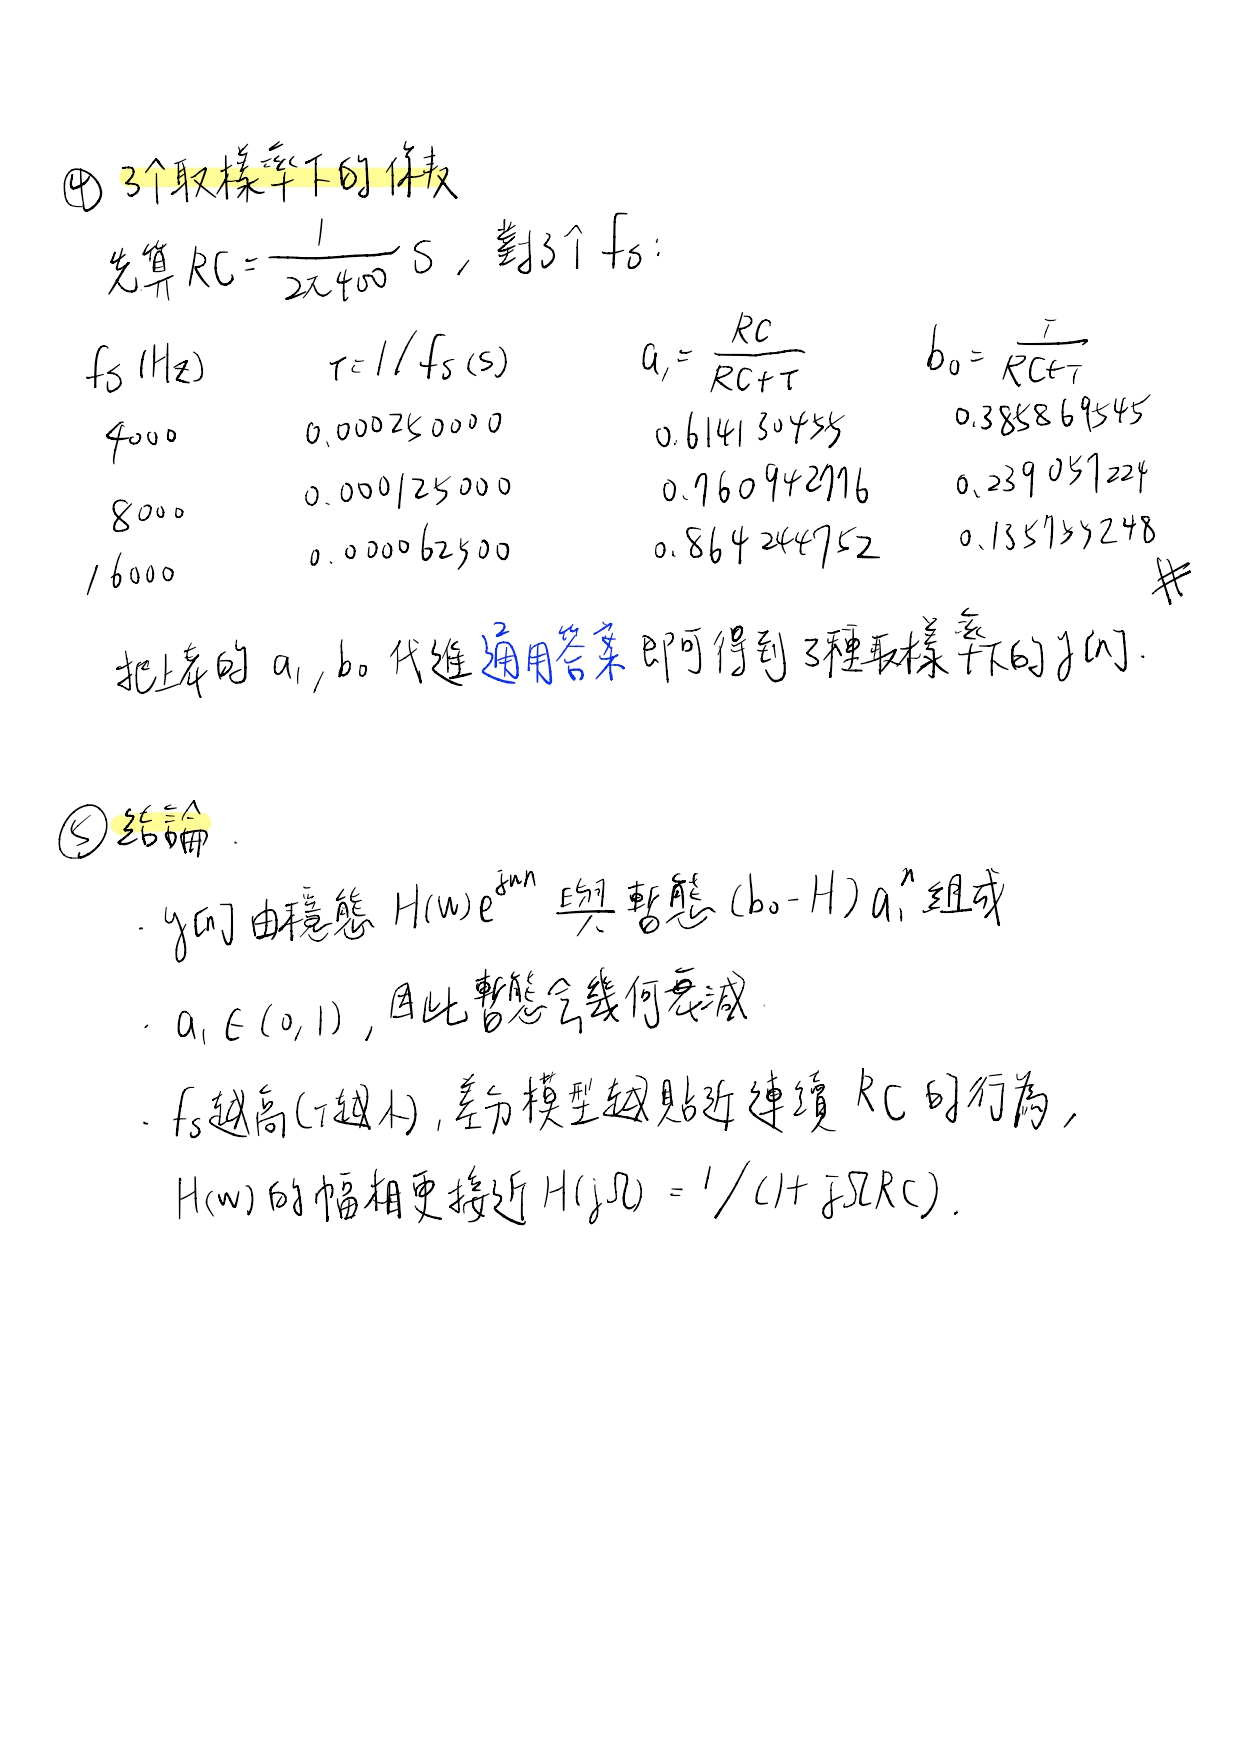 ④ 3个取樣率下的係数
先算 RC = 1/(2π400) S, 對3个 fs:
fs (Hz) T=1/fs(s) a₁ = RC/(RC+T) b₀ = T/(RC+T)
4000 0.000250000 0.614130455 0.385869545
8000 0.000125000 0.760942776 0.239057224
16000 0.000062500 0.864244752 0.135755248 #
把上表的 a₁, b₀ 代進通用答案即可得到3種取樣率下的y[n].
⑤ 結論.
· y[n]由穩態 H(w)e^{jwn} 與暫態 (b₀-H) a₁ⁿ 組成
· a₁ ∈ (0,1), 因此暫態会幾何衰減.
· fs越高(T越小), 差分模型越貼近連續 RC 的行為,
H(w) 的幅相更接近 H(jΩ) = 1/(1+jΩRC).